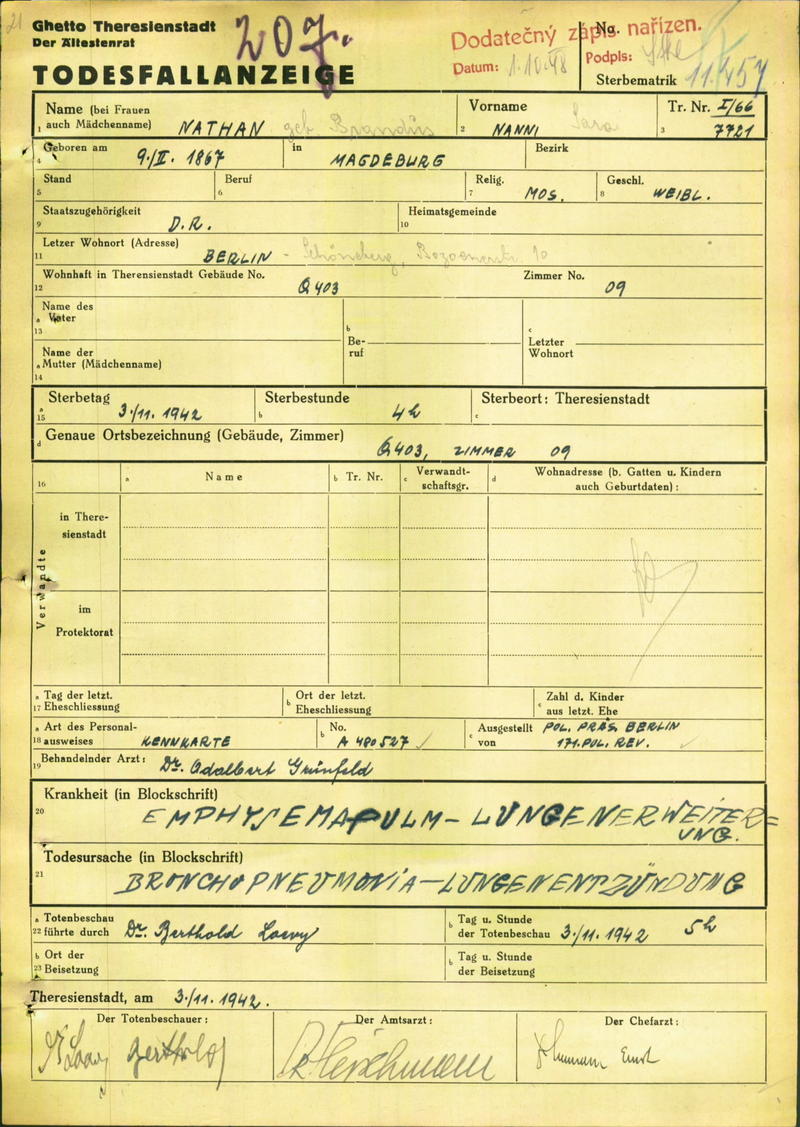 21
Ghetto Theresienstadt
Der Ältestenrat
TODESFALLANZEIGE
207.
Dodatečný zápis nařízen.
Datum: 1.10.48
Podpis:
No.
Sterbematrik 11/457
Name (bei Frauen
1 auch Mädchenname) NATHAN geb Brandus
Vorname
2 NANNI Sara
Tr. Nr. I/66
3 7721
Geboren am
4 9./II. 1867
in MAGDEBURG
Bezirk
Stand
5
Beruf
6
Relig.
7 MOS.
Geschl.
8 WEIBL.
Staatszugehörigkeit
9 D.R.
Heimatsgemeinde
10
Letzer Wohnort (Adresse)
11 BERLIN - Schöneberg, 10
Wohnhaft in Therensienstadt Gebäude No.
12 Q403
Zimmer No.
09
Name des
a Vater
13
b
Be-
ruf
c
Letzter
Wohnort
Name der
a Mutter (Mädchenname)
14
Sterbetag
a
15 3./11. 1942
Sterbestunde
b 4h
Sterbeort: Theresienstadt
c
d Genaue Ortsbezeichnung (Gebäude, Zimmer) Q403, ZIMMER 09
16
a Name
b Tr. Nr.
c Verwandt-
schaftsgr.
d Wohnadresse (b. Gatten u. Kindern
auch Geburtdaten) :
Verwandte
in There-
sienstadt
im
Protektorat
a Tag der letzt.
17 Eheschliessung
b Ort der letzt.
Eheschliessung
c Zahl d. Kinder
aus letzt. Ehe
a Art des Personal-
18 ausweises KENNKARTE
b No. A 480527
c Ausgestellt von POL. PRÄS. BERLIN
171. POL. REV.
19 Behandelnder Arzt: Dr. Adalbert Grünfeld
Krankheit (in Blockschrift)
20 EMPHYSEMA PULM - LUNGENERWEITER=
UNG.
Todesursache (in Blockschrift)
21 BRONCHOPNEUMONIA - LUNGENENTZÜNDUNG
a Totenbeschau
22 führte durch Dr. Berthold Loewy
b Tag u. Stunde
der Totenbeschau 3./11. 1942 5h
b Ort der
23 Beisetzung
b Tag u. Stunde
der Beisetzung
Theresienstadt, am 3./11. 1942.
Der Totenbeschauer :
Der Amtsarzt :
Der Chefarzt :